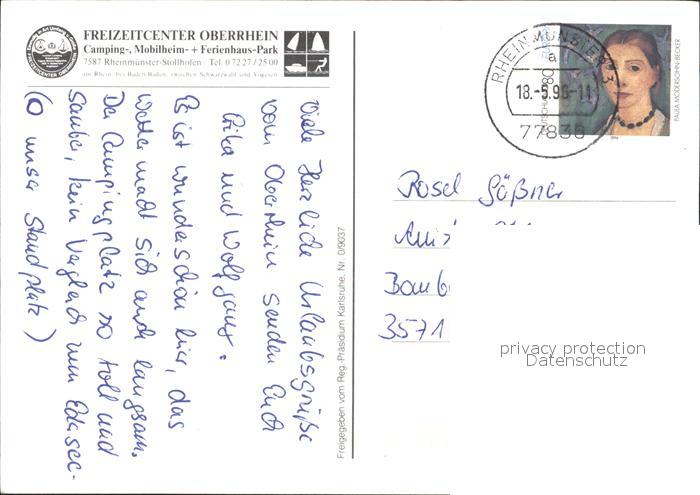 FREIZEITCENTER OBERRHEIN
Camping-, Mobilheim- + Ferienhaus-Park
7587 Rheinmünster-Stollhofen · Tel. 0 72 27 / 25 00
am Rhein, bei Baden-Baden, zwischen Schwarzwald und Vogesen
Viele Herzliche Urlaubsgrüße
vom Oberrhein senden Euch
Erika und Wolfgang.
Es ist wunderschön hier, das
Wetter macht sich auch langsam.
Der Campingplatz so toll und
sauber, kein Vergleich zum Edersee-
(O unser Standplatz)
Freigegeben vom Reg.-Präsidium Karlsruhe, Nr. 0/9037
RHEINMÜNSTER 3
a
18.-5.96-11
77836
80
PAULA MODERSOHN-BECKER
Rosel Gößner
3571
privacy protection
Datenschutz